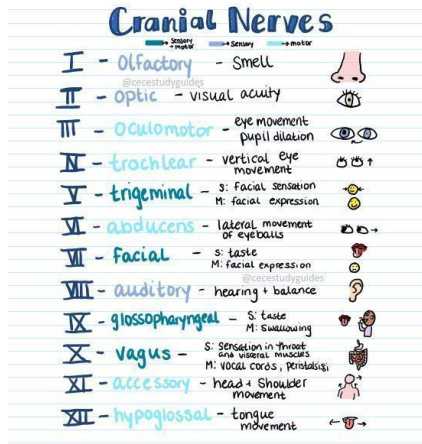 Cranial Nerves
→ Sensory + motor → Sensory → motor
I - Olfactory - Smell
@cecestudyguides
II - optic - visual acuity
III - Oculomotor - eye movement
pupil dilation
IV - trochlear - vertical eye
movement
V - trigeminal - S: facial sensation
M: facial expression
VI - abducens - lateral movement
of eyeballs
VII - facial - S: taste
M: facial expression
@cecestudyguides
VIII - auditory - hearing + balance
IX - glossopharyngeal - S: taste
M: swallowing
X - vagus - S: sensation in throat
and visceral muscles
M: vocal cords, peristalsis
XI - accessory - head + shoulder
movement
XII - hypoglossal - tongue
movement